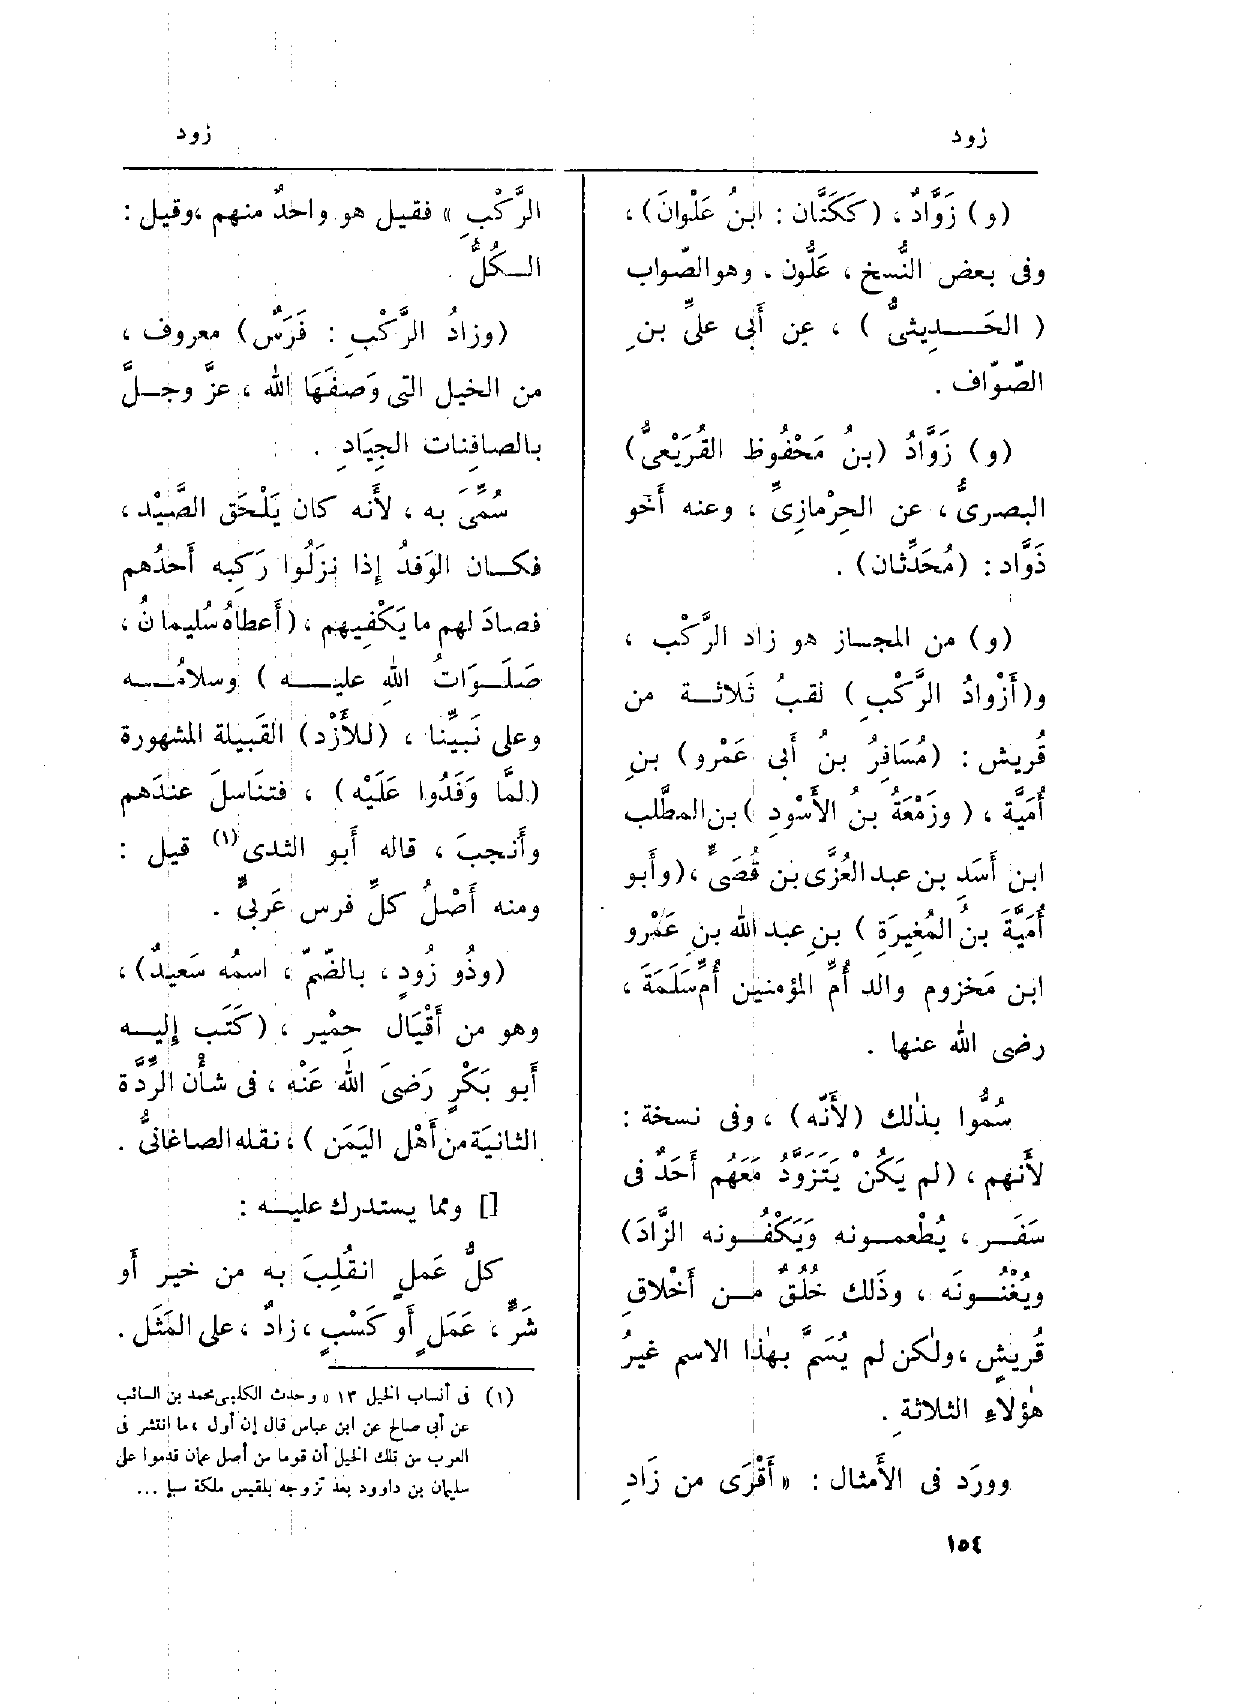 زود
زود
(و) زَوَّادٌ، (كَكَتَّان : ابنُ عَلْوانَ)،
وفى بعض النُّسخ ، عَلُّون . وهو الصّواب
( الحَـــديثىُّ ) ، عن أَبى علىِّ بنِ
الصّوّاف .
(و) زَوَّادُ (بنُ مَحْفُوظ القُرَيْعىُّ)
البصرىُّ ، عن الحِرْمازِىِّ ، وعنه أَخو
ذَوَّاد : (مُحَدِّثان) .
(و) من المجـاز هو زاد الرَّكْب ،
و(أَزْوادُ الرَّكْبِ ) لقبُ ثَلاثـة من
قُريش : (مُسَافِرُ بنُ أَبى عَمْرو) بنِ
أُمَيَّة ، ( وزَمْعَةُ بنُ الأَسْودِ ) بن المطَّلب
ابن أَسَدِ بن عبد العُزَّى بن قُصَىٍّ ، (وأَبو
أُمَيَّةَ بنُ المُغِيرَة ) بنِ عبد الله بن عَمْرو
ابن مَخزوم والد أُمِّ المؤمنين أُمِّ سَلَمَةَ ،
رضى الله عنها .
سُمُّوا بذٰلك (لأَنَّه) ، وفى نسخة :
لأَنهم ، (لم يَكُنْ يَتَزَوَّدُ مَعَهم أَحَدٌ فى
سَفَـر ، يُطْعمـونه وَيَكْفُـونه الزَّادَ)
ويُغْنُـونَه ، وذٰلك خُلُقٌ مـن أَخْلاقِ
قُريشٍ ، ولٰكن لم يُسَمَّ بهٰذا الاسم غيرُ
هٰؤلاءِ الثلاثةِ .
وورَد فى الأَمثال : « أَقْرَى من زَادِ
الرَّكْبِ » فقيل هو واحدٌ منهم ، وقيل :
الـكُلُّ .
(وزادُ الرَّكْبِ : فَرَسٌ) معروف ،
من الخيل التى وَصفَهَا الله ، عزَّ وجـلَّ
بالصافِنات الجِيَادِ .
سُمِّىَ به ، لأَنه كان يَلْحَق الصَّيْد ،
فكـان الوَفدُ إذا نزَلُوا رَكِبه أَحدُهم
فصادَ لهم ما يَكْفِيهم ، (أَعطاهُ سُليمانُ ،
صَلَـوَاتُ الله عليـــه ) وسلامُـــه
وعلى نَبيِّنا ، (للأَزْد) القَبِيلة المشهورة
(لمَّا وَفَدُوا عَلَيْه) ، فتنَاسلَ عندَهم
وأَنجبَ ، قاله أَبو الندى(١) قيل :
ومنه أَصْلُ كلِّ فرس عَربىٍّ .
(وذُو زُودٍ ، بالضّمّ ، اسمُه سَعيدٌ) ،
وهو من أَقْيَال حِمْير ، (كَتَب إليـه
أَبو بَكْرٍ رَضىَ اللهُ عَنْه ، فى شأْن الرِّدَّة
الثانيَة من أَهْل اليَمَن ) ، نقله الصاغانىُّ .
[] ومما يستدرك عليـه :
كلُّ عَملٍ انقُلِبَ به من خير أَو
شَرٍّ ، عَمَلٍ أَو كَسْبٍ ، زادٌ ، على المَثَل .
(١) فى أنساب الخيل ١٣ « وحدث الكلبى محمد بن السائب
عن أبى صالح عن ابن عباس قال إن أول ما انتشر فى
العرب من تلك الخيل أن قوما من أصل عمان قدموا على
سليمان بن داوود بعد تزوجه بلقيس ملكة سبإ ...
١٥٤